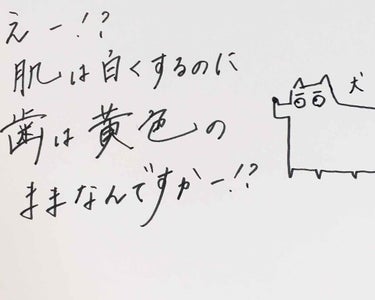 えー!?
肌は白くするのに
歯は黄色の
ままなんですかー!?
犬